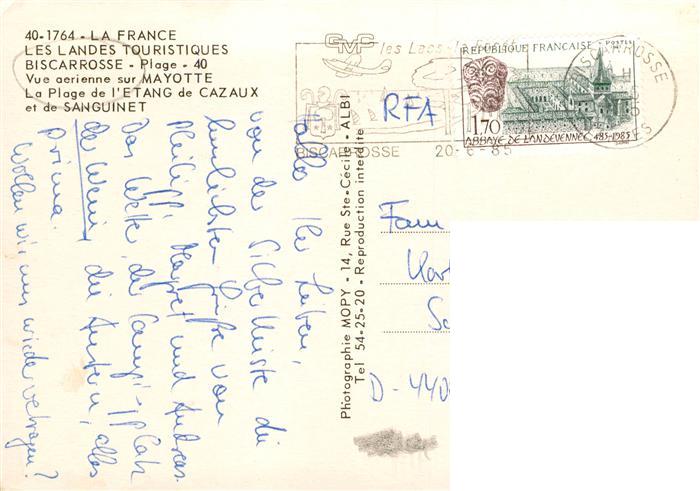 40-1764 - LA FRANCE
LES LANDES TOURISTIQUES
BISCARROSSE - Plage - 40
Vue aerienne sur MAYOTTE
La Plage de l'ETANG de CAZAUX
et de SANGUINET
GMC
les Lacs - la Forêt
BISCARROSSE 20-6-85
BISCARROSSE
RÉPUBLIQUE FRANÇAISE
POSTES
1,70
ABBAYE DE LANDEVENNEC 485-1985
RFA
Hallo Ihr Lieben,
von der Silberküste die
herzlichsten Grüße von
Philipp, Margret und Andreas.
Das Wetter, der Campingplatz
der Wein, die Austern, alles
prima.
Wollen wir uns wieder vertragen?
Photographie MOPY - 14, Rue Ste-Cécile - ALBI
Tel 54-25-20 - Reproduction interdite
Fam
D-440